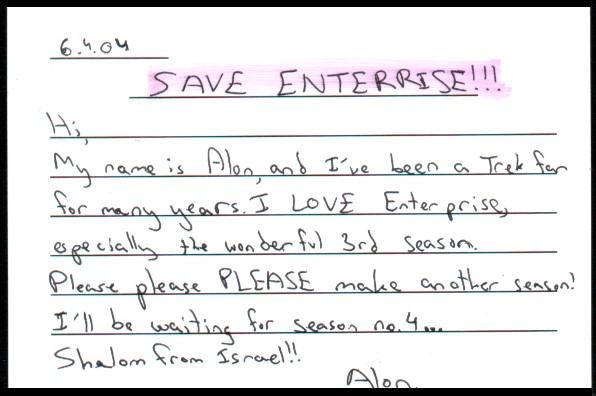 6.4.04
SAVE ENTERRISE!!!
Hi,
My name is Alon, and I've been a Trek fan
for many years. I LOVE Enterprise,
especially the wonderful 3rd season.
Please please PLEASE make another season!
I'll be waiting for season no. 4...
Shalom from Israel!!
Alon